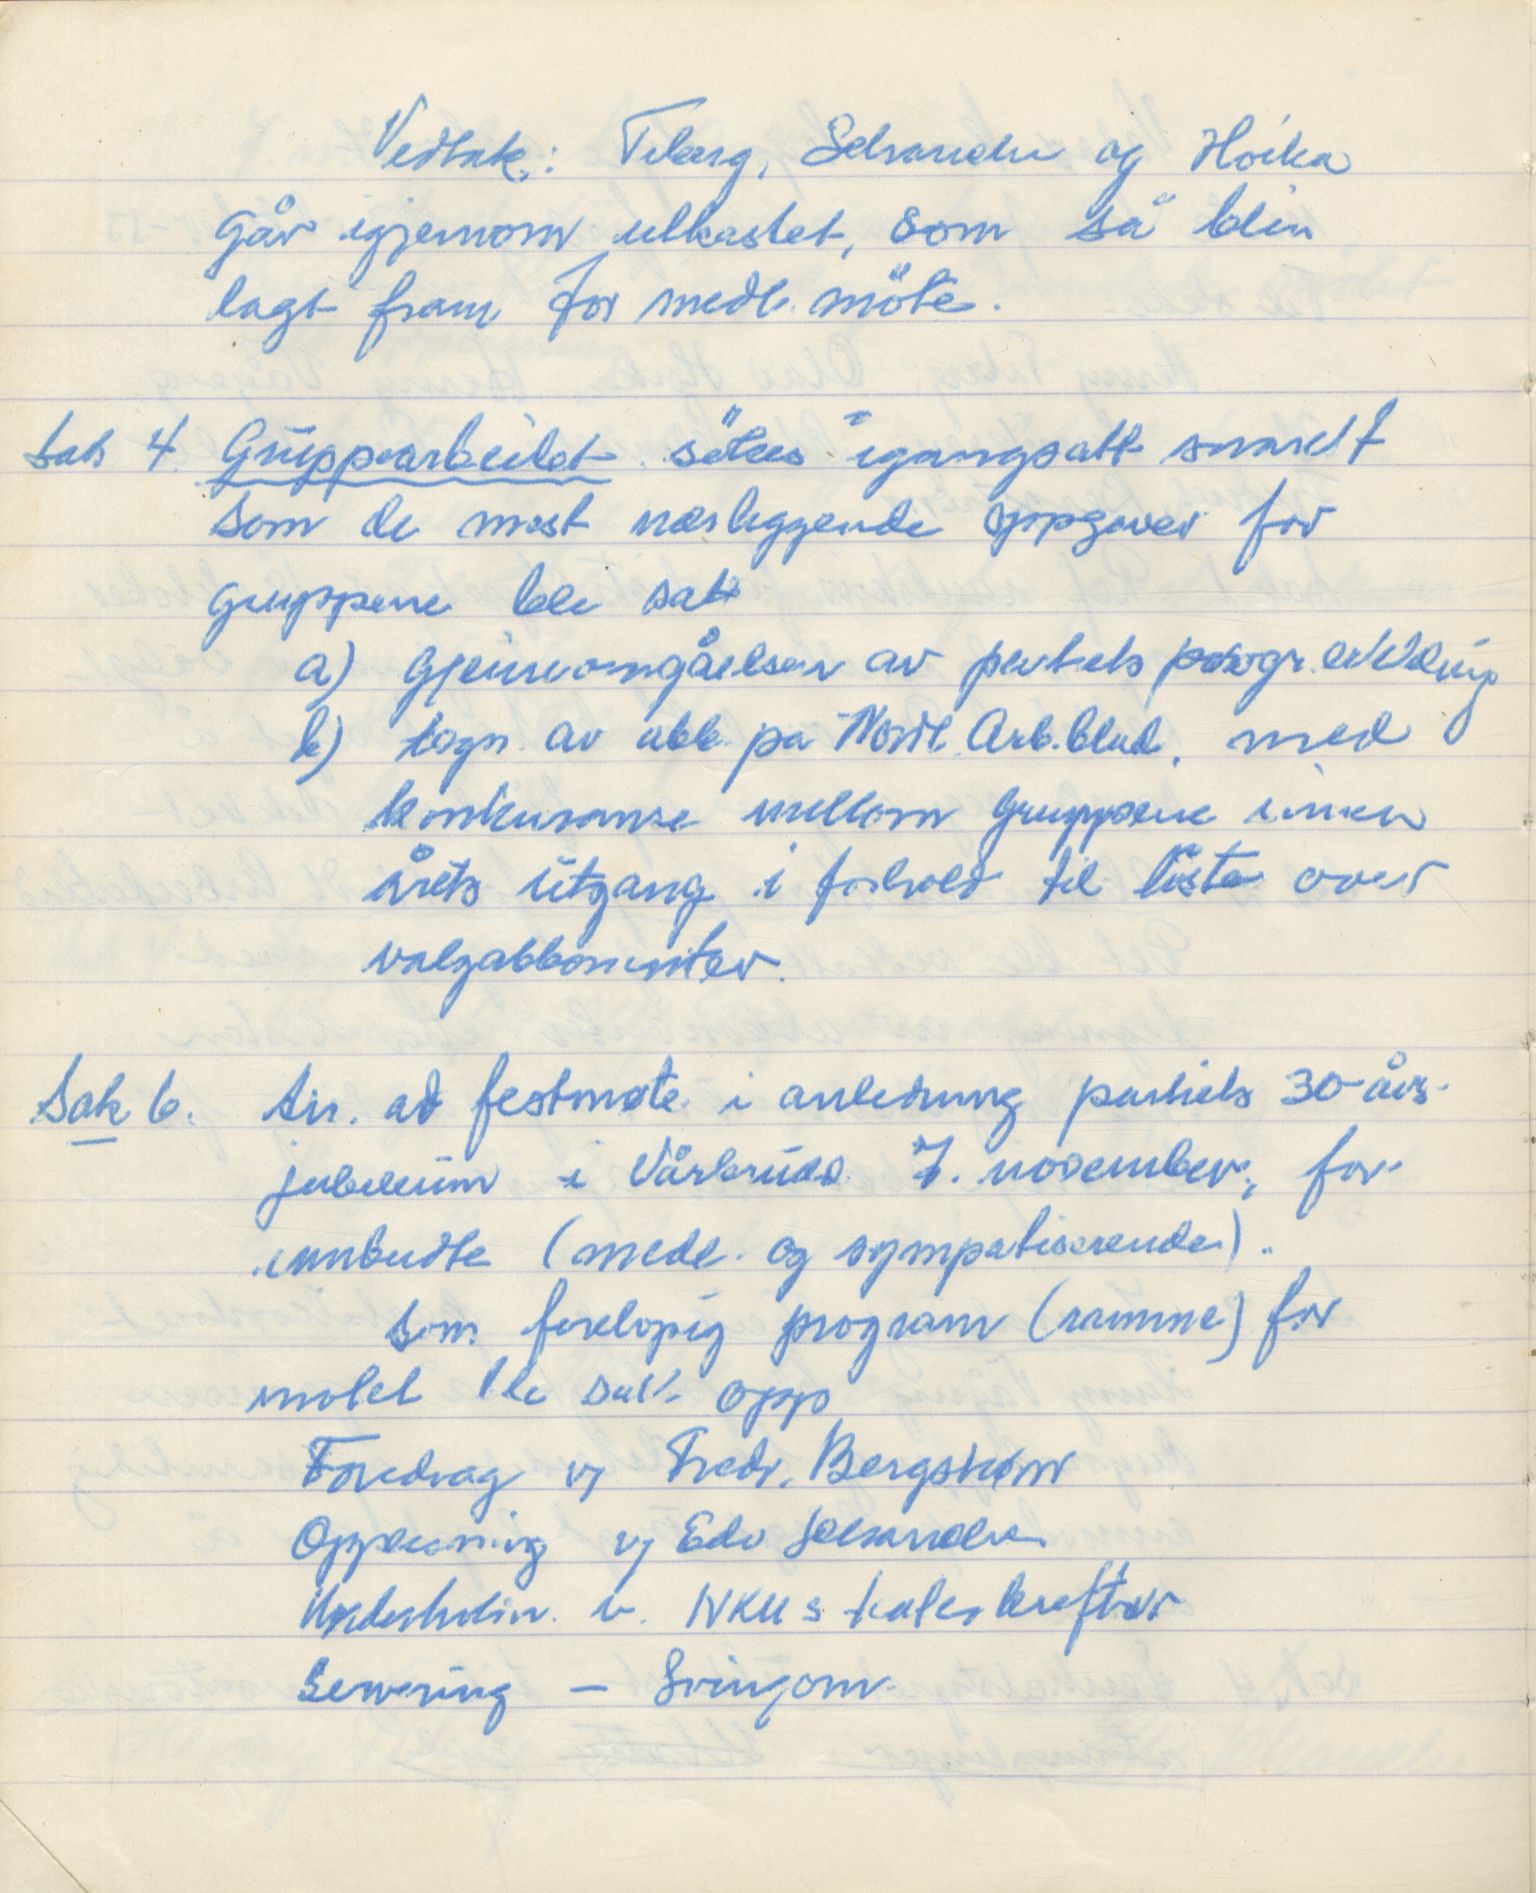 Vedtak: Tiberg, Selvander og Hoika
går igjennom utkastet, som så blir
lagt fram for medl. møte.
Sak 4. Gruppearbeidet søkes igangsatt snarest
Som de mest nærliggende oppgaver for
gruppene ble satt
a) Gjennomgåelsen av partiets progr. erklæring
b) tegn. av abb. på Nordl. Arb.blad, med
konkuranse mellom gruppene innen
årets utgang i forhold til lista over
valgabbonenter.
Sak 6. Arr. av festmøte i anledning partiets 30-års-
jubileum i Vårbrudd 7. november, for
innbudte (medl. og sympatiserende).
Som foreløpig program (ramme) for
møtet ble satt opp
Foredrag v/ Fredr. Bergstrøm
Opplesning v/ Edv
Underholdn. v. NKUs krefter
Servering – Svingom